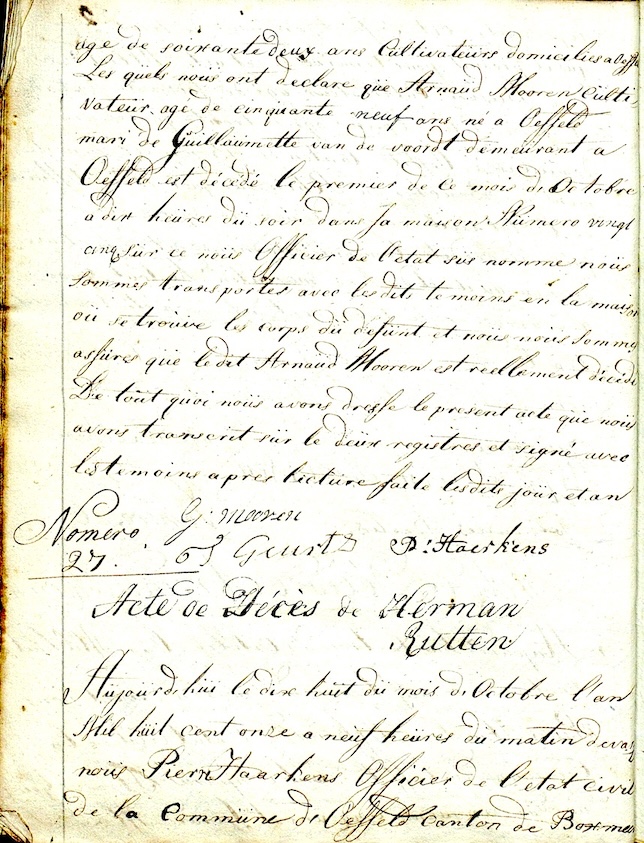 age de soixante deux ans Cultivateurs domiciliés a Oeffe
Les quels nous ont declare que Arnaud Mooren Culti
vateur age de cinquante neuf ans né a Oeffeld
mari de Guillaumette van de voordt demeurant a
Oeffeld est décédé le premier de ce mois d'Octobre
a dix heures du soir dans sa maison Numero vingt
cinq sur ce nous Officier de l'etat sus nomme nous
sommes transportés avec lesdits temoins en la maison
ou se trouve les corps du defunt et nous nous somme
assures que le dit Arnaud Mooren est reellement décédé
De tout quoi nous avons dresse le present acte que nous
avons transcrit sur le deux registres et signé avec
les temoins apres lecture faite lesdits jour et an
G. Mooren
Nomero
27.
Geurts P. Haerkens
Acte de Décès de Herman
Rutten
Aujourd'hui le dix huit du mois d'Octobre l'an
Mil huit cent onze a neuf heures du matin devan
nous Pierre Haerkens Officier de l'etat civil
de la Commune d'Oeffeld canton de Boxmee